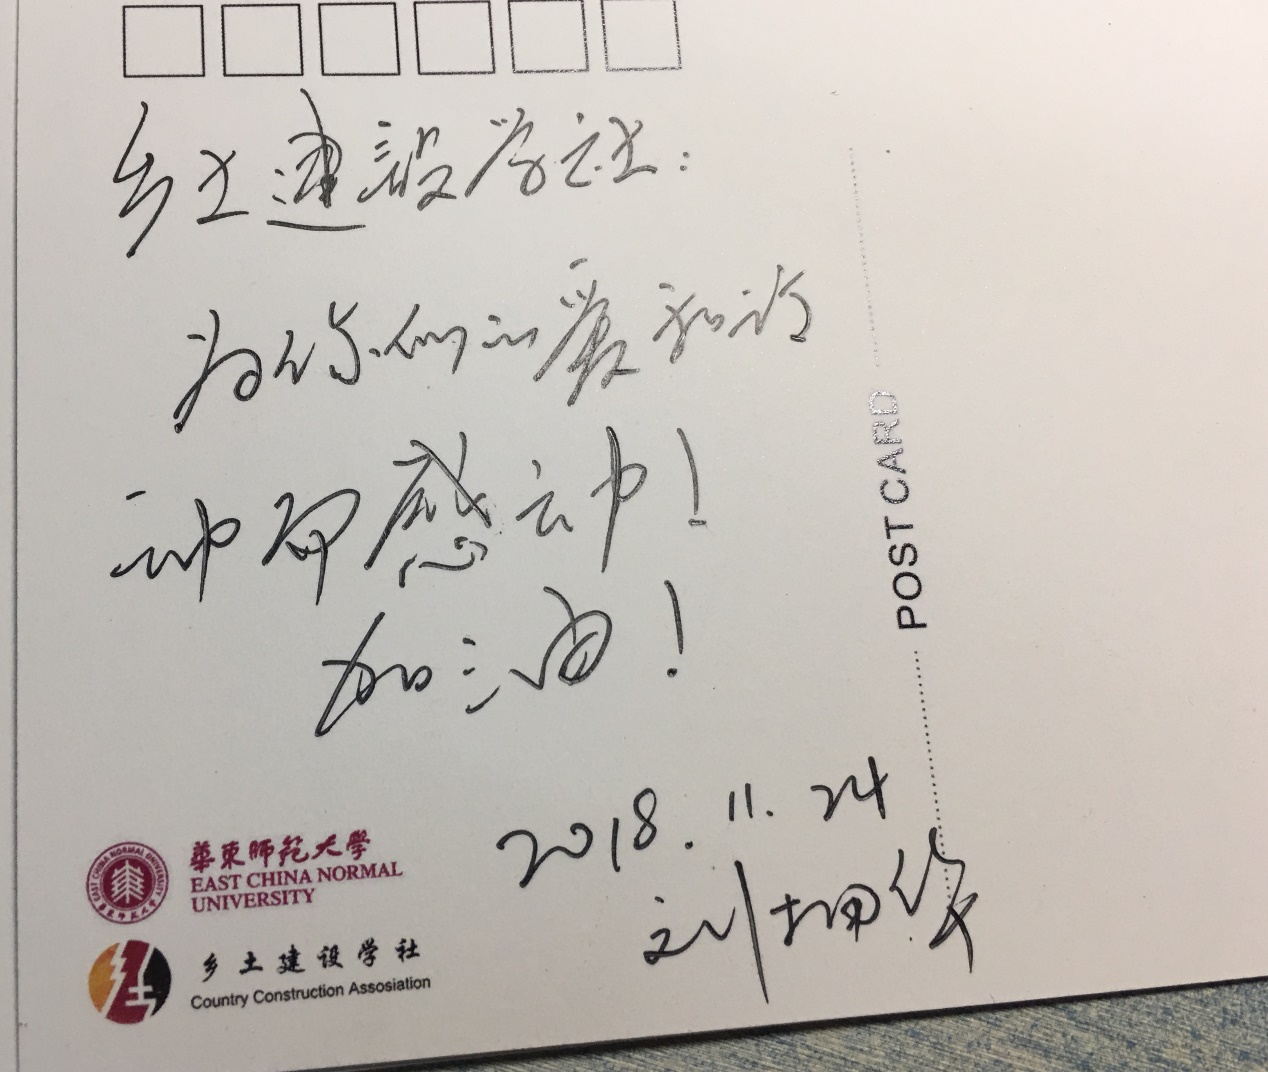 乡土建设学社：
为你们的爱和行
动而感动！
加油！
2018.11.24
刘
POSTCARD
華東師範大學
EAST CHINA NORMAL
UNIVERSITY
乡土建设学社
Country Construction Assosiation